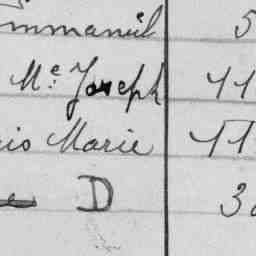 mmanuel 5
Mc. Joseph 11
is Marie 11
D 3